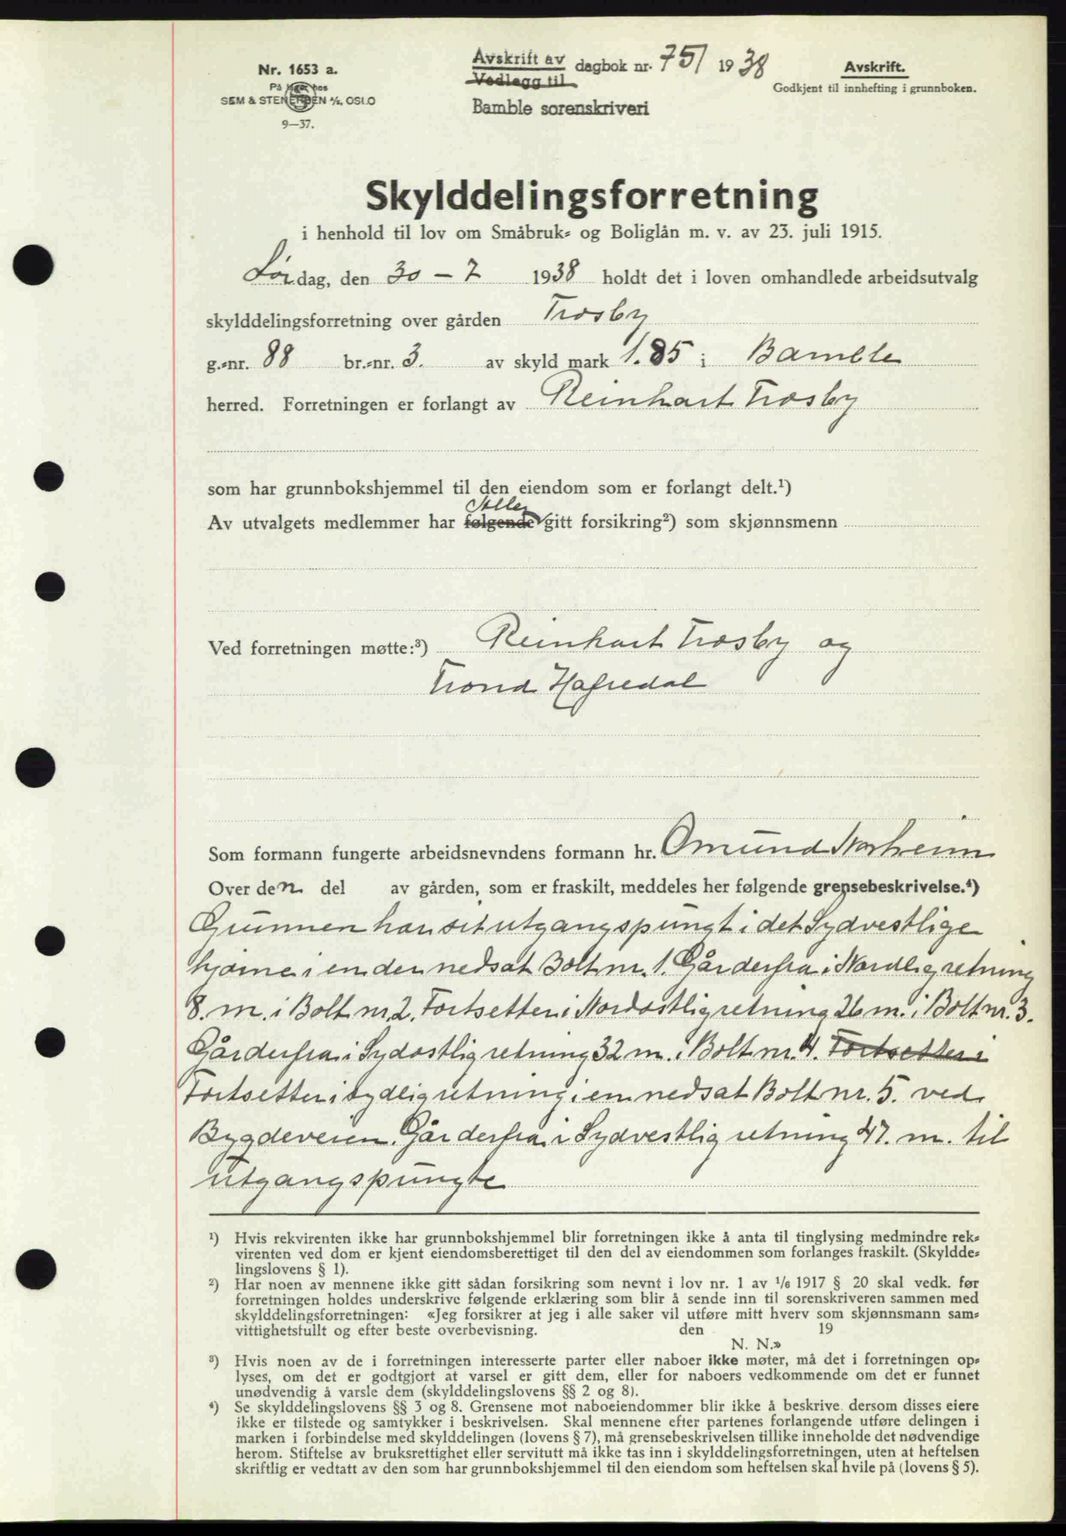 Nr. 1653 a.
På lager hos
SEM & STENERSEN A/S, OSLO
9—37.
Avskrift av
Vedlegg til
dagbok nr. 751 1938
Bamble sorenskriveri
Avskrift.
Godkjent til innhefting i grunnboken.
Skylddelingsforretning
i henhold til lov om Småbruk- og Boliglån m. v. av 23. juli 1915.
Lørdag, den 30 - 7 1938 holdt det i loven omhandlede arbeidsutvalg
skylddelingsforretning over gården Trosby
g.-nr. 88 br.-nr. 3. av skyld mark 1.85 i Bamble
herred. Forretningen er forlangt av Reinhart Trosby
som har grunnbokshjemmel til den eiendom som er forlangt delt.¹)
Alle
Av utvalgets medlemmer har følgende gitt forsikring²) som skjønnsmenn
Ved forretningen møtte:³) Reinhart Trosby og
Trond Hafredal
Som formann fungerte arbeidsnevndens formann hr. Omund Norheim
Over den del av gården, som er fraskilt, meddeles her følgende grensebeskrivelse.⁴)
Grunnen har sit utgangspungt i det Sydvestlige
hjørne i en der nedsat Bolt nr. 1. Går derfra i Nordlig retning
8. m. i Bolt nr. 2. Fortsetter i Nordostlig retning 26 m. i Bolt nr. 3.
Går derfra i Sydostlig retning 32 m. i Bolt nr. 4. Fortsetter i
Fortsetter i sydlig retning i en nedsat Bolt nr. 5. ved
Bygdeveien. Går derfra i Sydvestlig retning 47. m. til
utgangspungte
¹) Hvis rekvirenten ikke har grunnbokshjemmel blir forretningen ikke å anta til tinglysing medmindre rek-
virenten ved dom er kjent eiendomsberettiget til den del av eiendommen som forlanges fraskilt. (Skyldde-
lingslovens § 1).
²) Har noen av mennene ikke gitt sådan forsikring som nevnt i lov nr. 1 av 1/6 1917 § 20 skal vedk. før
forretningen holdes underskrive følgende erklæring som blir å sende inn til sorenskriveren sammen med
skylddelingsforretningen: «Jeg forsikrer at jeg i alle saker vil utføre mitt hverv som skjønnsmann sam-
vittighetsfullt og efter beste overbevisning. den 19
N. N.»
³) Hvis noen av de i forretningen interesserte parter eller naboer ikke møter, må det i forretningen op-
lyses, om det er godtgjort at varsel er gitt dem, eller for naboers vedkommende om det er funnet
unødvendig å varsle dem (skylddelingslovens §§ 2 og 8).
⁴) Se skylddelingslovens §§ 3 og 8. Grensene mot naboeiendommer blir ikke å beskrive, dersom disses eiere
ikke er tilstede og samtykker i beskrivelsen. Skal mennene efter partenes forlangende utføre delingen i
marken i forbindelse med skylddelingen (lovens § 7), må grensebeskrivelsen tillike inneholde det nødvendige
herom. Stiftelse av bruksrettighet eller servitutt må ikke tas inn i skylddelingsforretningen, uten at heftelsen
skriftlig er vedtatt av den som har grunnbokshjemmel til den eiendom som heftelsen skal hvile på (lovens § 5).